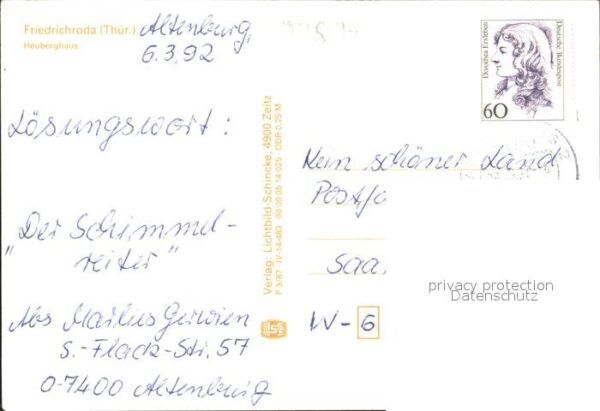 Friedrichroda (Thür.)
Heuberghaus
Altenburg,
6.3.92
Lösungswort:
"Der Schimmel-
reiter"
Abs Marlies Gerwien
S.-Flack-Str. 57
O-7400 Altenburg
Verlag: Lichtbild-Schincke, 4900 Zeitz
P 3/87 IV-14-480 00 09 05 14 025 DDR 0,25 M
Dorothea Erxleben
Deutsche Bundespost
60
Kein schöner Land
Postfa
Saa
W-6
privacy protection
Datenschutz